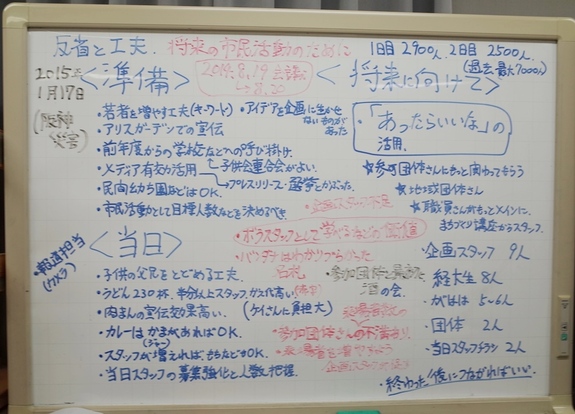 反省と工夫. 将来の市民活動のために
1日目 2900人. 2日目 2500人.
(過去最大7000人)
2015年
1月17日
(阪神
災害)
<準備>
2014.8.19 会議
8.20
<将来に向けて>
・若者を増やす工夫(キーワード)
・アイデアを企画に活かせ
ないものが
あった
・アリスガーデンでの宣伝
・前年度からの学校などへの呼び掛け.
・メディア有効活用
子供企画会がよい.
プレスリリース・選挙とかぶった.
・民向
はOK.
・市民活動として目標人数などを決めるべき
・「あったらいいな」の
活用.
☆参加団体さんにもっと関わってもらう
☆地域団体さん
☆職員さんがもっとメインに.
まちづくり講座からスタッフ.
・報道担当
(カメラ)
<当日>
・企画スタッフ不足
・ボラスタッフとして学べるなどの価値
・バンダナはわかりづらかった
名札.
・参加団体と最後に
酒の会.
・子供の父兄をとどめる工夫.
・うどん230杯. 半分以上スタッフ.
・肉まんの宣伝効果高い.
(ケイさんに負担大)
・カレーはかまがあればOK.
(ジャー)
・スタッフが増えれば. もちなどもOK.
・当日スタッフの募集強化と人数把握.
・参加団体さんの不満あり
・来場者を増やせるよう
・企画スタッフ 9人
・経大生 8人
・がはは 5~6人
・団体 2人
・当日スタッフチラシ 2人
・終わった後につながればいい.